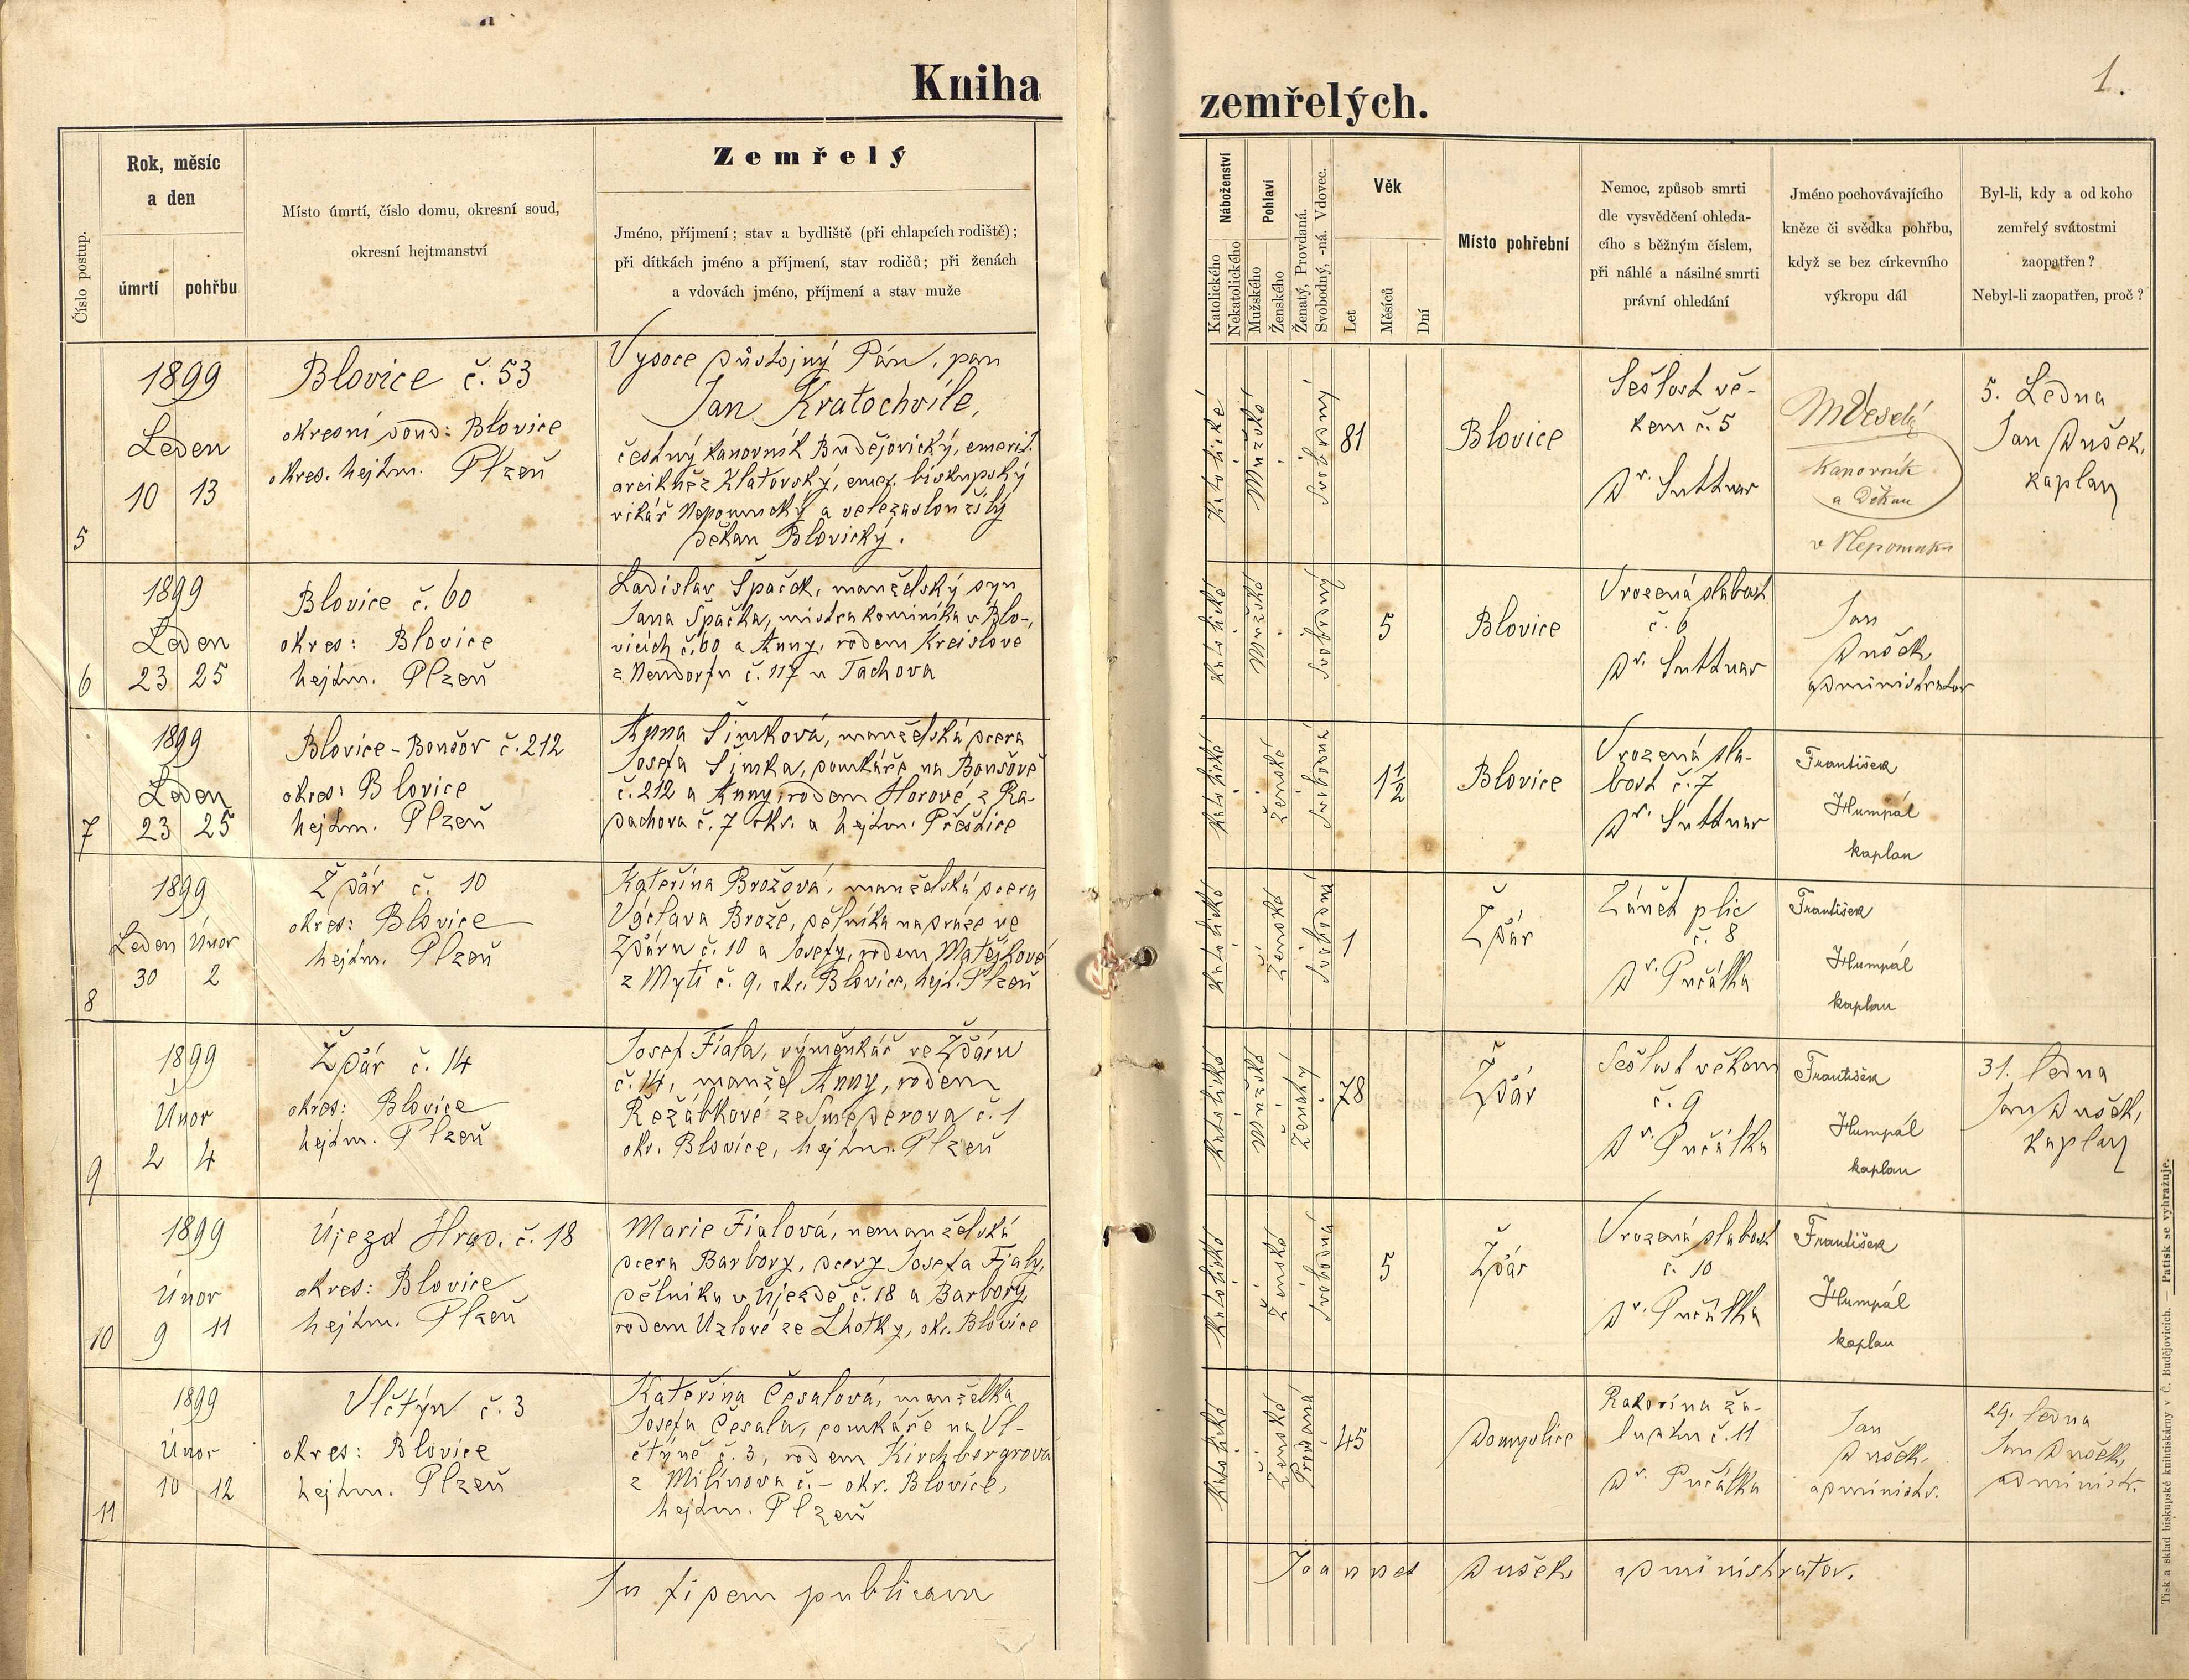 Kniha
zemřelých.
1.
Číslo postup.
Rok, měsíc
a den
úmrtí
pohřbu
Místo úmrtí, číslo domu, okresní soud,
okresní hejtmanství
Zemřelý
Jméno, příjmení; stav a bydliště (při chlapcích rodiště);
při dítkách jméno a příjmení, stav rodičů; při ženách
a vdovách jméno, příjmení a stav muže
Náboženství
Katolického
Nekatolického
Pohlaví
Mužského
Ženského
Ženatý, Provdaná.
Svobodný, -ná. Vdovec.
Věk
Let
Měsíců
Dní
Místo pohřební
Nemoc, způsob smrti
dle vysvědčení ohleda-
cího s běžným číslem,
při náhlé a násilné smrti
právní ohledání
Jméno pochovávajícího
kněze či svědka pohřbu,
když se bez církevního
výkropu dál
Byl-li, kdy a od koho
zemřelý svátostmi
zaopatřen?
Nebyl-li zaopatřen, proč?
5
1899
Leden
10 13
Blovice č. 53
okresní soud: Blovice
okres. hejtm. Plzeň
Vysoce důstojný Pán, pan
Jan Kratochvíle,
čestný kanovník Budějovický, emerit.
arcikněz Klatovský, emer. biskupský
vikář Nepomucký a velezasloužilý
děkan Blovický.
Katolické
Mužské
Svobodný
81
Blovice
Sešlost vě-
kem č. 5
Dr. Suttnar
MVeselý
Kanovník
a Děkan
v Nepomuku
5. Ledna
Jan Dušek,
kaplan
6
1899
Leden
23 25
Blovice č. 60
okres: Blovice
hejtm. Plzeň
Ladislav Špaček, manželský syn
Jana Špačka, mistra kominíka v Blo-
vicích č. 60 a Anny, rodem Kreislové
z Neudorfu č. 117 u Tachova
Katolické
Mužské
Svobodný
5
Blovice
Vrozená slabost
č. 6
Dr. Suttnar
Jan
Dušek,
administrator
7
1899
Leden
23 25
Blovice-Bonšov č. 212
okres: Blovice
hejtm. Plzeň
Anna Šimková, manželská dcera
Josefa Šimka, domkáře na Bonšově
č. 212 a Anny, rodem Horové, z Ra-
dachova č. 7 okr. a hejtm. Přeštice
Katolické
Ženské
Svobodná
1½
Blovice
Vrozená sla-
bost č. 7
Dr. Suttnar
František
Humpál
kaplan
8
1899
Leden Únor
30 2
Ždár č. 10
okres: Blovice
hejtm. Plzeň
Kateřina Brožová, manželská dcera
Václava Brože, dělníka na dráze ve
Ždáru č. 10 a Josefy, rodem Matějkové
z Mýtí č. 9, okr. Blovice, hejt. Plzeň
Katolické
Ženské
Svobodná
1
Ždár
Zánět plic
č. 8
Dr. Pučálka
František
Humpál
kaplan
9
1899
Únor
2 4
Ždár č. 14
okres: Blovice
hejtm. Plzeň
Josef Fiala, výměnkář ve Ždáru
č. 14, manžel Anny, rodem
Řežábkové ze Směderova č. 1
okr. Blovice, hejtm. Plzeň
Katolické
Mužské
Ženatý
78
Ždár
Sešlost věkem
č. 9
Dr. Pučálka
František
Humpál
kaplan
31. ledna
Jan Dušek,
kaplan
10
1899
Únor
9 11
Újezd Hrad. č. 18
okres: Blovice
hejtm. Plzeň
Marie Fialová, nemanželská
dcera Barbory, dcery Josefa Fialy,
dělníka v Újezdě č. 18 a Barbory,
rodem Uzlové ze Lhotky, okr. Blovice
Katolické
Ženské
Svobodná
5
Ždár
Vrozená slabost
č. 10
Dr. Pučálka
František
Humpál
kaplan
11
1899
Únor
10 12
Vlčtýn č. 3
okres: Blovice
hejtm. Plzeň
Kateřina Česalová, manželka
Josefa Česala, domkáře na Vl-
čtýně č. 3, rodem Kirchbergrová
z Milínova č. - okr. Blovice,
hejtm. Plzeň
Katolické
Ženské
Provdaná
45
Domyslice
Rakovina ža-
ludku č. 11
Dr. Pučálka
Jan
Dušek,
administr.
29. ledna
Jan Dušek,
administr.
In fidem publicam
Joannes Dušek administrator.
Tisk a sklad biskupské knihtiskárny v Č. Budějovicích. — Patisk se vyhražuje.